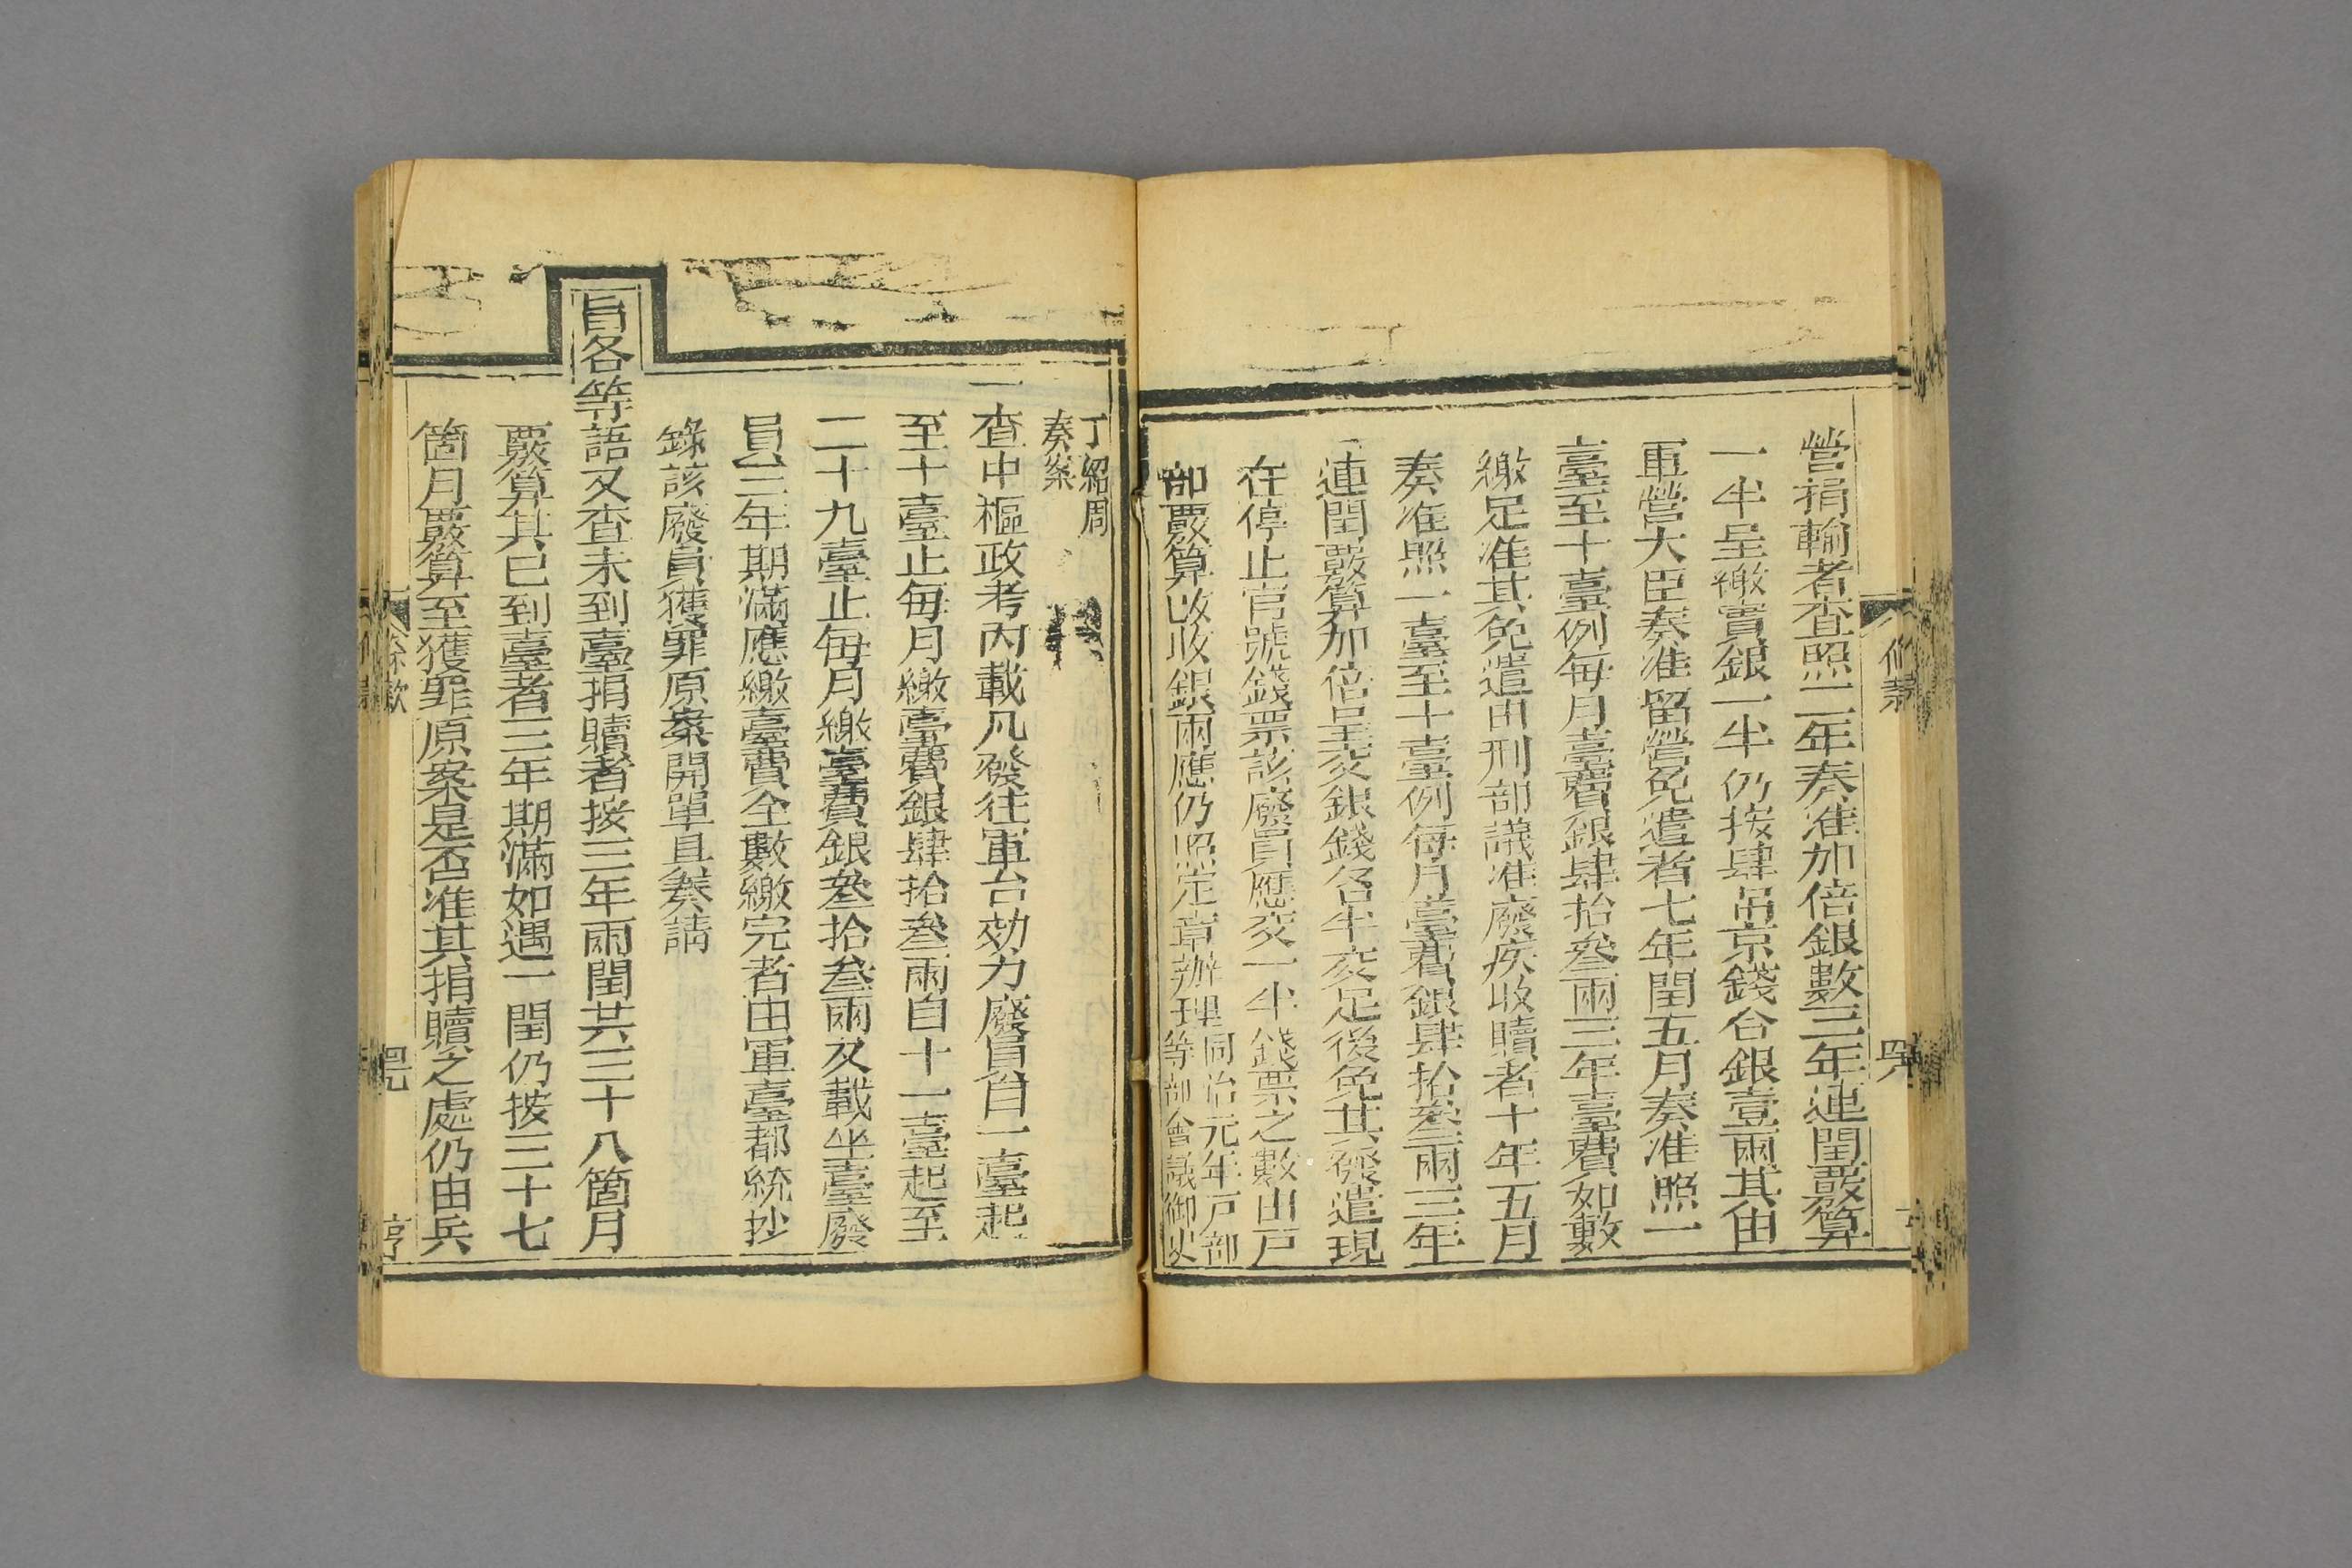 營捐輸者查照二年奏准加倍銀數三年連閏覈算
一半呈繳實銀一半仍按肆吊京錢合銀壹兩其由
軍營大臣奏准留營免遣者七年閏五月奏准照一
臺至十臺例每月臺費銀肆拾叁兩三年臺費如數
繳足准其免遣由刑部議准廢疾收贖者十年五月
奏准照一臺至十臺例每月臺費銀肆拾叁兩三年
連閏覈算加倍呈交銀錢各半交足後免其發遣現
在停止官號錢票該廢員應交一半錢票之數由戶
部覈算改收銀兩應仍照定章辦理同治元年戶部
等部會議御史
丁紹周
奏案
一查中樞政考內載凡發往軍台効力廢員自一臺起
至十臺止每月繳臺費銀肆拾叁兩自十一臺起至
二十九臺止每月繳臺費銀叁拾叁兩又載坐臺廢
員三年期滿應繳臺費全數繳完者由軍臺都統抄
錄該廢員獲罪原案開單具奏請
旨各等語又查未到臺捐贖者按三年兩閏共三十八箇月
覈算其已到臺者三年期滿如遇一閏仍按三十七
箇月覈算至獲罪原案是否准其捐贖之處仍由兵